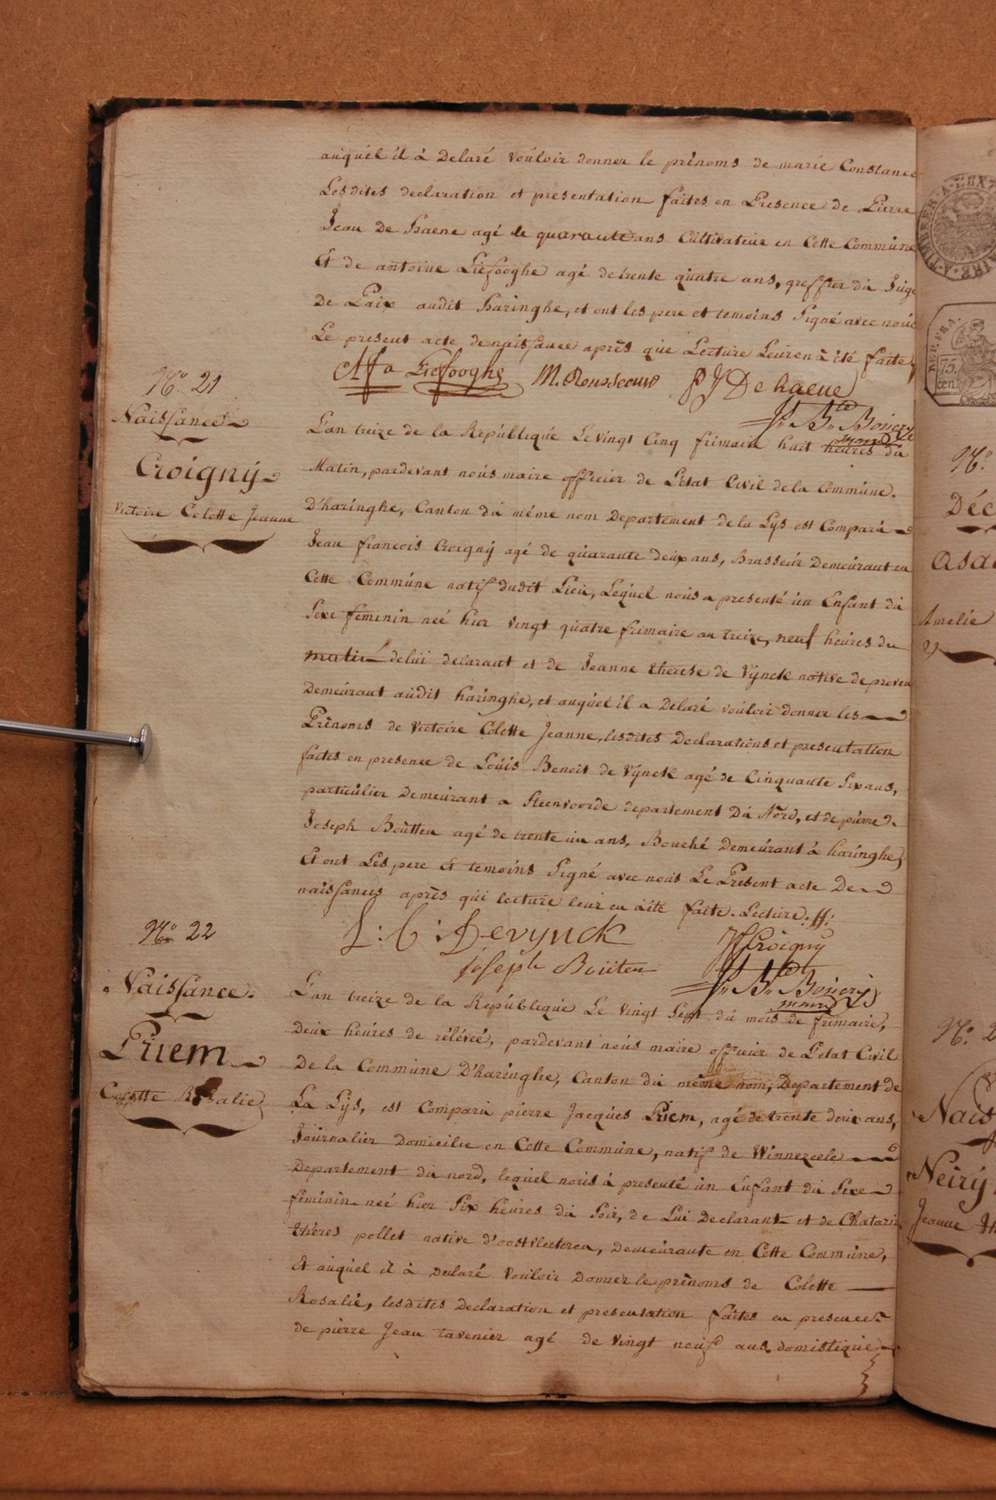 auquel il à Delaré vouloir donner le prénoms de marie Constance
Lesdites declaration et presentation faites en Presence de Pierre
Jean de haene agé de quarante ans Cultivateur en Cette Commune
Et de antoine Liefooghe agé de trente quatre ans, greffier du Juge
De Paix audit haringhe, et ont les pere et temoins Signé avec nous
Le present acte de naissance après que Lecture Leur en à été faite
Liefooghe M. Rousseeuw P J De haene
N.º 21
Naissance
Croigny
Victoire Colette Jeanne
L'an treize de la République Le vingt Cinq frimaire huit heures du
Matin, pardevant nous maire officier de L'etat Civil de la Commune
D'haringhe, Canton du même nom Departement de la Lys est Comparù
Jean francois Croigny agé de quarante deux ans, Brasseur Demeurant en
Cette Commune natif dudit Lieu, Lequel nous a presenté un Enfant du
Sexe feminin neé hier vingt quatre frimaire an treize, neuf heures du
matin de lui declarant et de Jeanne therese de Vynck native de proven
Demeurant audit haringhe, et auquel il a Delaré vouloir donner les
Prénoms de Victoire Colette Jeanne, lesdites Declarations et presentation
faites en presence de Louis Benoit de Vynck agé de Cinquante Six ans,
particulier Demeurant a Steenvoorde departement Du Nord, et de pierre
Joseph Boutten agé de trente un ans, Bouché Demeurant à haringhe,
Et ont Les pere Et temoins Signé avec nous Le Present acte De
naissances après qui lecture leur en a été faite. Lecture
L: C: Devynck JfCroigny
Joseph Bouten
N.º 22
Naissance
Priem
Colette Rosalie
L'an treize de la République Le vingt Sept du mois de frimaire,
deux heures de rélévé, pardevant nous maire officier de L'etat Civil
De la Commune D'haringhe, Canton du même nom, Departement de
La Lys, est Comparù pierre Jacques Priem, agé de trente deux ans,
Journalier Domicilié en Cette Commune, natif de Winnezeele
Departement du nord, lequel nous à presenté un Enfant du Sexe
féminin neé hier Six heures du Soir, de Lui Declarant et de Chatarin
thérès pollet native d'oostvleteren, Demeurante en Cette Commune,
Et auquel il à declaré Vouloir Donner le prénoms de Colette
Rosalie, lesdites Declaration et presentation faites en presence
de pierre Jean tavenier agé de vingt neuf ans domistique